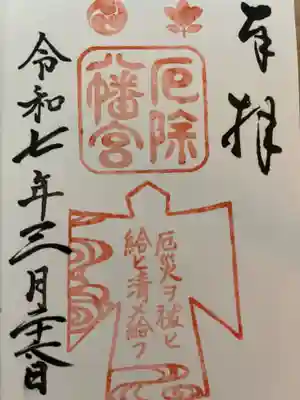 奉拝
厄除
八幡宮
厄災ヲ祓ヒ
給ヒ清メ給フ
令和七年三月日